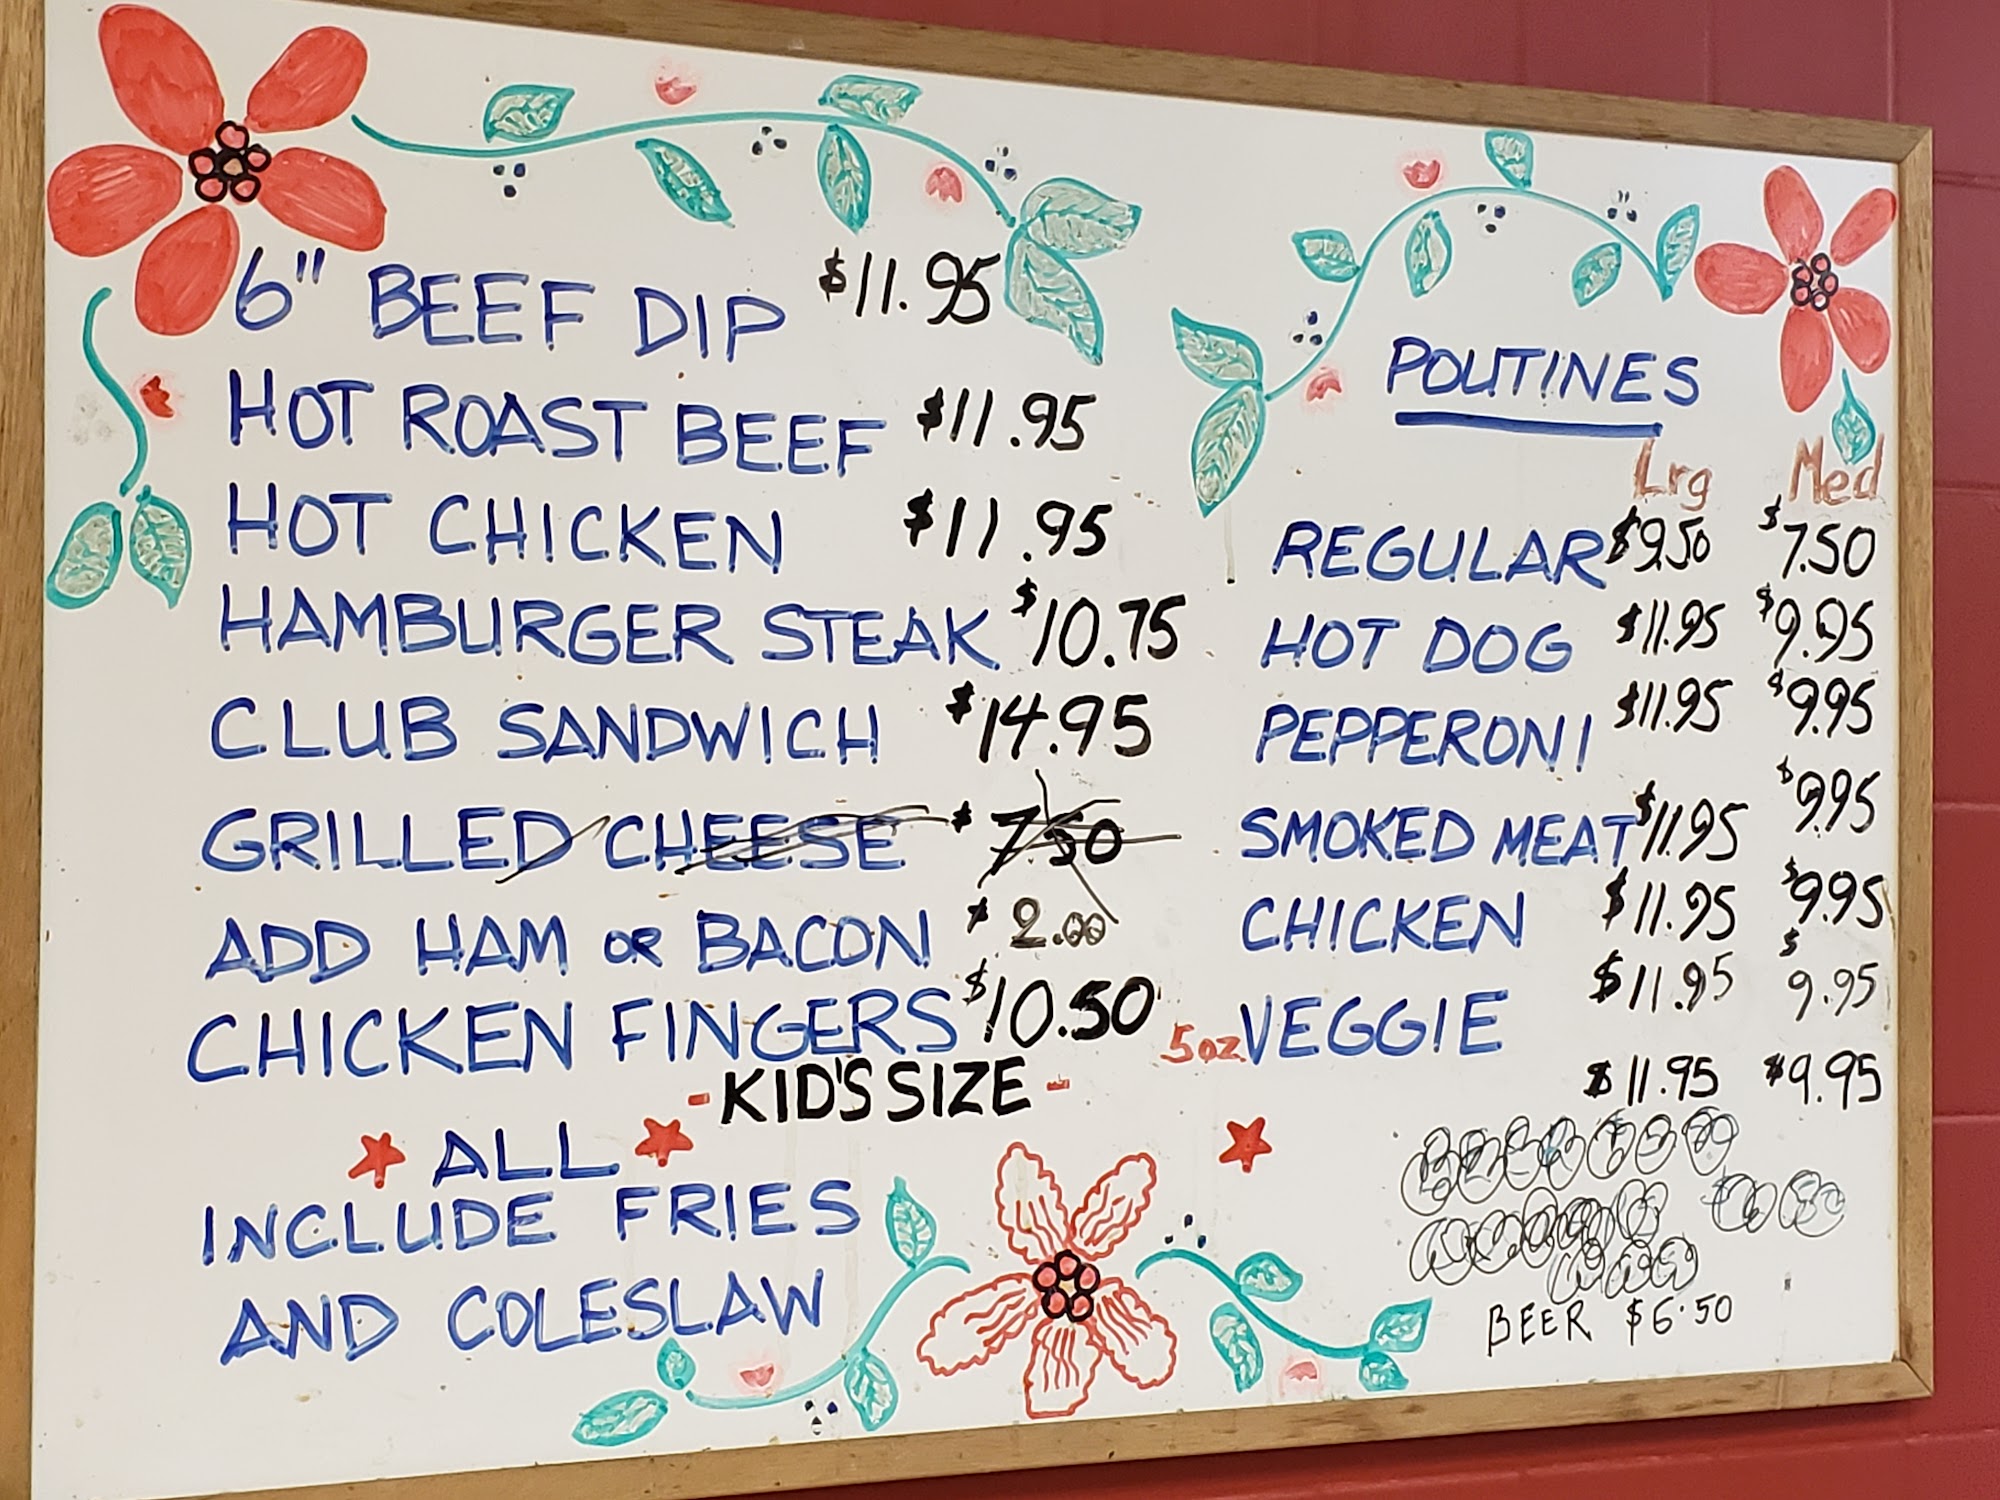 6" BEEF DIP $11.95
HOT ROAST BEEF $11.95
HOT CHICKEN $11.95
HAMBURGER STEAK $10.75
CLUB SANDWICH $14.95
GRILLED CHEESE $7.50
ADD HAM OR BACON $2.00
CHICKEN FINGERS $10.50 5oz.
- KID'S SIZE -
ALL
INCLUDE FRIES
AND COLESLAW
POUTINES
Lrg Med
REGULAR $9.50 $7.50
HOT DOG $11.95 $9.95
PEPPERONI $11.95 $9.95
SMOKED MEAT $11.95 $9.95
CHICKEN $11.95 $9.95
VEGGIE $11.95 $9.95
$11.95 $9.95
BEER $6.50